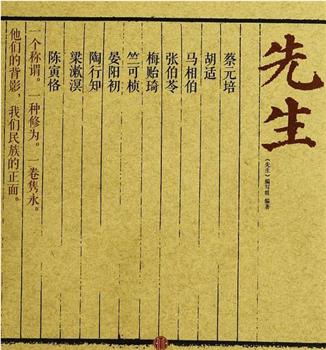 先生
《先生》编写组 编著
蔡元培
胡适
马相伯
张伯苓
梅贻琦
竺可桢
晏阳初
陶行知
梁漱溟
陈寅恪
一个称谓。一种修为。一卷隽永。
他们的背影,我们民族的正面。